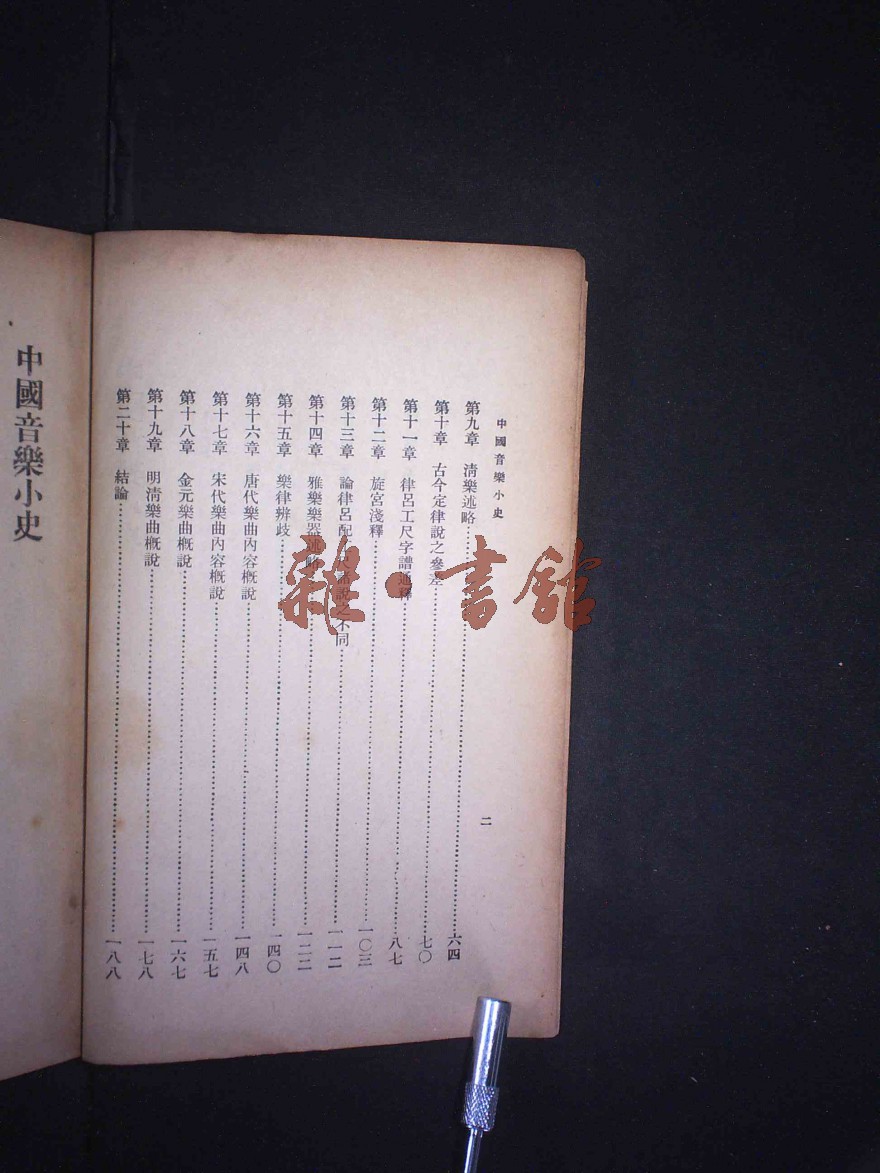 中國音樂小史
二
第九章 清樂述略 六四
第十章 古今定律說之參差 七〇
第十一章 律呂工尺字譜通釋 八七
第十二章 旋宮淺釋 一〇三
第十三章 論律呂配 尺諸說之不同 一一二
第十四章 雅樂樂器述略 一二二
第十五章 樂律辨歧 一四〇
第十六章 唐代樂曲內容概說 一四八
第十七章 宋代樂曲內容概說 一五七
第十八章 金元樂曲概說 一六七
第十九章 明清樂曲概說 一七八
第二十章 結論 一八八
中國音樂小史
雜·書館